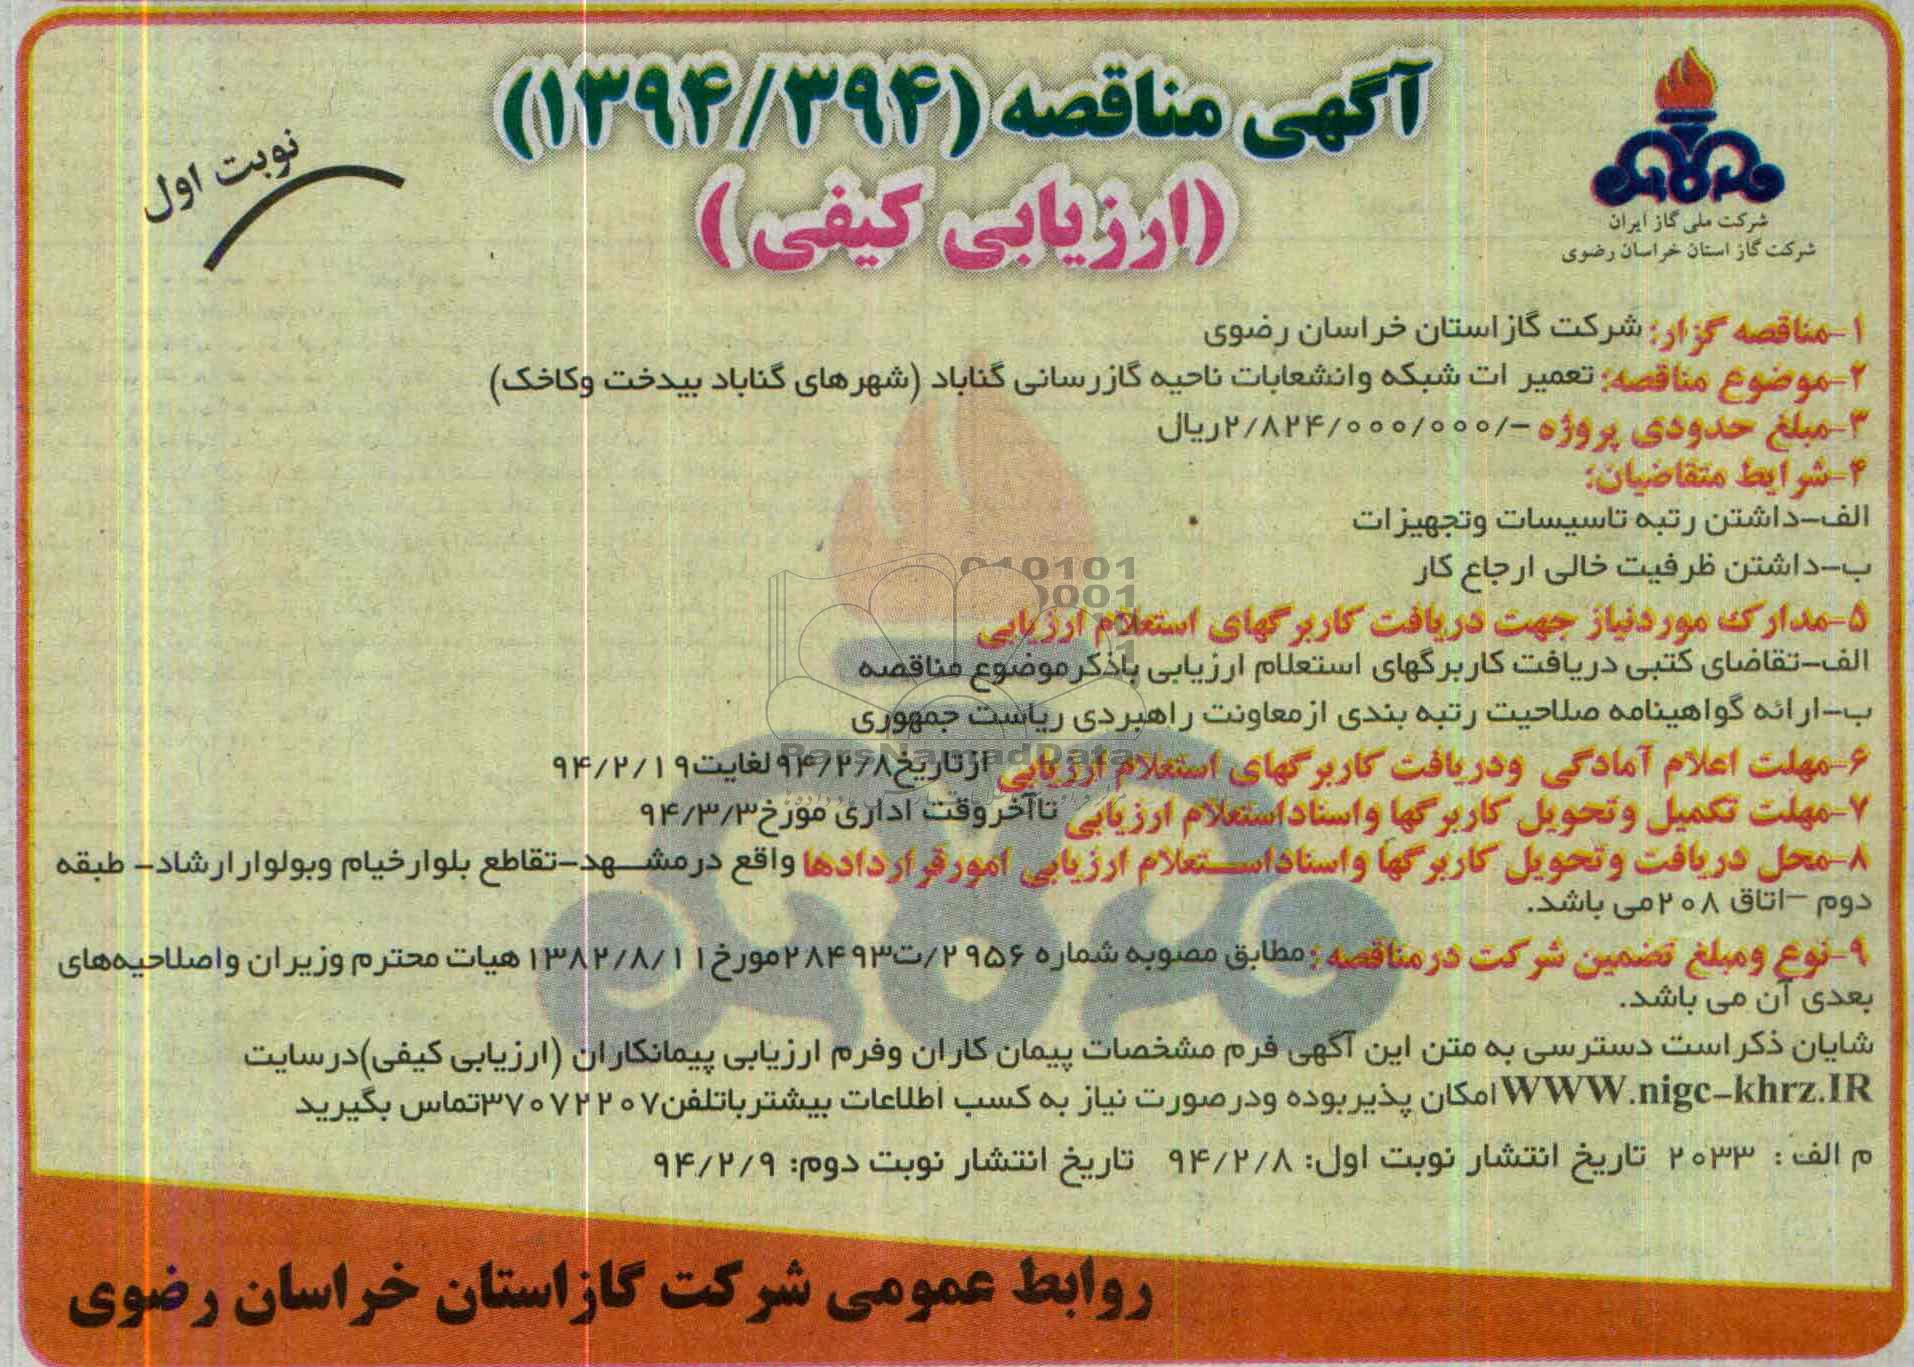 آگهی مناقصه (۱۳۹۴/۳۹۴)
(ارزیابی کیفی)
نوبت اول
شرکت ملی گاز ایران
شرکت گاز استان خراسان رضوی
۱-مناقصه گزار: شرکت گاز استان خراسان رضوی
۲-موضوع مناقصه: تعمیر ات شبکه وانشعابات ناحیه گازرسانی گناباد (شهرهای گناباد بیدخت وکاخک)
۳-مبلغ حدودی پروژه -/۲/۸۲۴/۰۰۰/۰۰۰ریال
۴-شرایط متقاضیان:
الف-داشتن رتبه تاسیسات وتجهیزات
ب-داشتن ظرفیت خالی ارجاع کار
۵-مدارک موردنیاز جهت دریافت کاربرگهای استعلام ارزیابی
الف-تقاضای کتبی دریافت کاربرگهای استعلام ارزیابی باذکرموضوع مناقصه
ب-ارائه گواهینامه صلاحیت رتبه بندی ازمعاونت راهبردی ریاست جمهوری
۶-مهلت اعلام آمادگی ودریافت کاربرگهای استعلام ارزیابی ازتاریخ۹۴/۲/۸ لغایت۹۴/۲/۱۹
۷-مهلت تکمیل وتحویل کاربرگها واسناداستعلام ارزیابی تاآخروقت اداری مورخ۹۴/۳/۳
۸-محل دریافت وتحویل کاربرگها واسناداستعلام ارزیابی امورقراردادها واقع درمشهد-تقاطع بلوارخیام وبولوارارشاد- طبقه
دوم -اتاق ۲۰۸می باشد.
۹-نوع ومبلغ تضمین شرکت درمناقصه: مطابق مصوبه شماره ۲۹۵۶/ت۲۸۴۹۳مورخ۱۳۸۲/۸/۱۱ هیات محترم وزیران واصلاحیه‌های
بعدی آن می باشد.
شایان ذکراست دسترسی به متن این آگهی فرم مشخصات پیمان کاران وفرم ارزیابی پیمانکاران (ارزیابی کیفی)درسایت
WWW.nigc-khrz.IR امکان پذیربوده ودرصورت نیاز به کسب اطلاعات بیشترباتلفن۳۷۰۷۲۲۰۷تماس بگیرید
م الف : ۲۰۳۳ تاریخ انتشار نوبت اول: ۹۴/۲/۸ تاریخ انتشار نوبت دوم: ۹۴/۲/۹
روابط عمومی شرکت گازاستان خراسان رضوی
ParsNamadData